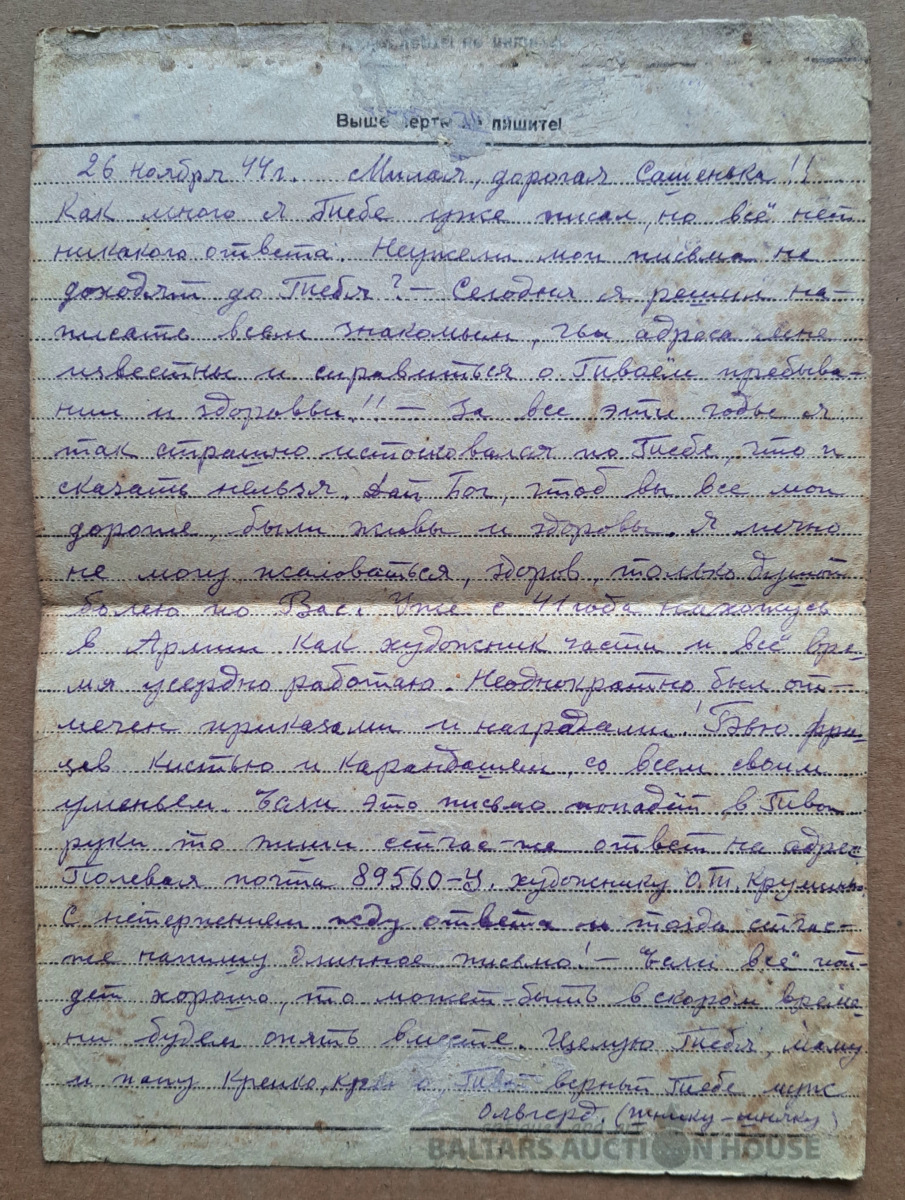 Выше черты не пишите!
26 ноября 44 г. Милая, дорогая Сашенька!!
Как много я Тебе уже писал, но всё нет
никакого ответа. Неужели мои письма не
доходят до Тебя? — Сегодня я решил на-
писать всем знакомым, чьи адреса мне
известны и справиться о Твоём пребыва-
нии и здоровьи!! — За все эти годы я
так страшно истосковался по Тебе, что и
сказать нельзя. Дай Бог, чтоб вы все мои
дорогие, были живы и здоровы. Я лично
не могу жаловаться, здоров, только душой
болею по Вас! Уже с 41 года нахожусь
в Армии как художник части и всё вре-
мя усердно работаю. Неоднократно был от-
мечен приказами и наградами! Бью фри-
цев кистью и карандашем, со всем своим
уменьем. Если это письмо попадёт в Твои
руки то пиши сейчас-же ответ на адрес
Полевая почта 89560-У. художнику О.Т. Круминь
С нетерпением жду ответа и тогда сейчас-
же напишу длинное письмо! — Если всё пой-
дет хорошо, то может-быть в скором време-
ни будем опять вместе. Целую Тебя, маму
и папу крепко, верный Тебе муж
Ольгерд.
BALTARS AUCTION HOUSE